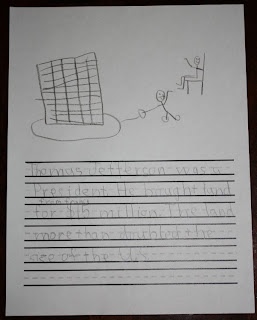 Thomas Jefferson was a
President. He bought land
from France
for $15 million. The land
more than doubled the
size of the U.S.